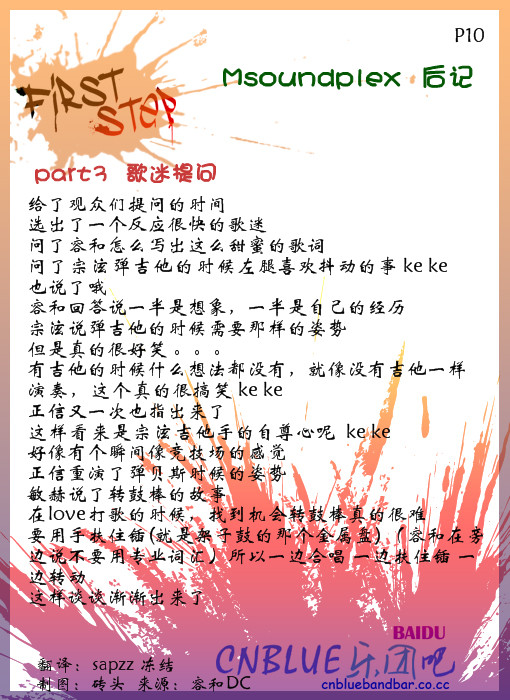 P10
FiRST STeP
Msoundplex 后记
part3 歌迷提问
给了观众们提问的时间
选出了一个反应很快的歌迷
问了容和怎么写出这么甜蜜的歌词
问了宗泫弹吉他的时候左腿喜欢抖动的事 ke ke
也说了哦
容和回答说一半是想象，一半是自己的经历
宗泫说弹吉他的时候需要那样的姿势
但是真的很好笑。。。
有吉他的时候什么想法都没有，就像没有吉他一样
演奏，这个真的很搞笑 ke ke
正信又一次也指出来了
这样看来是宗泫吉他手的自尊心呢 ke ke
好像有个瞬间像竞技场的感觉
正信重演了弹贝斯时候的姿势
敏赫说了转鼓棒的故事
在love打歌的时候，找到机会转鼓棒真的很难
要用手扶住镲(就是架子鼓的那个金属盖）（容和在旁
边说不要用专业词汇）所以一边合唱 一边扶住镲 一
边转动
这样谈谈渐渐出来了
BAIDU
CNBLUE乐团吧
cnbluebandbar.co.cc
翻译：sapzz 冻结
制图：砖头 来源：容和DC